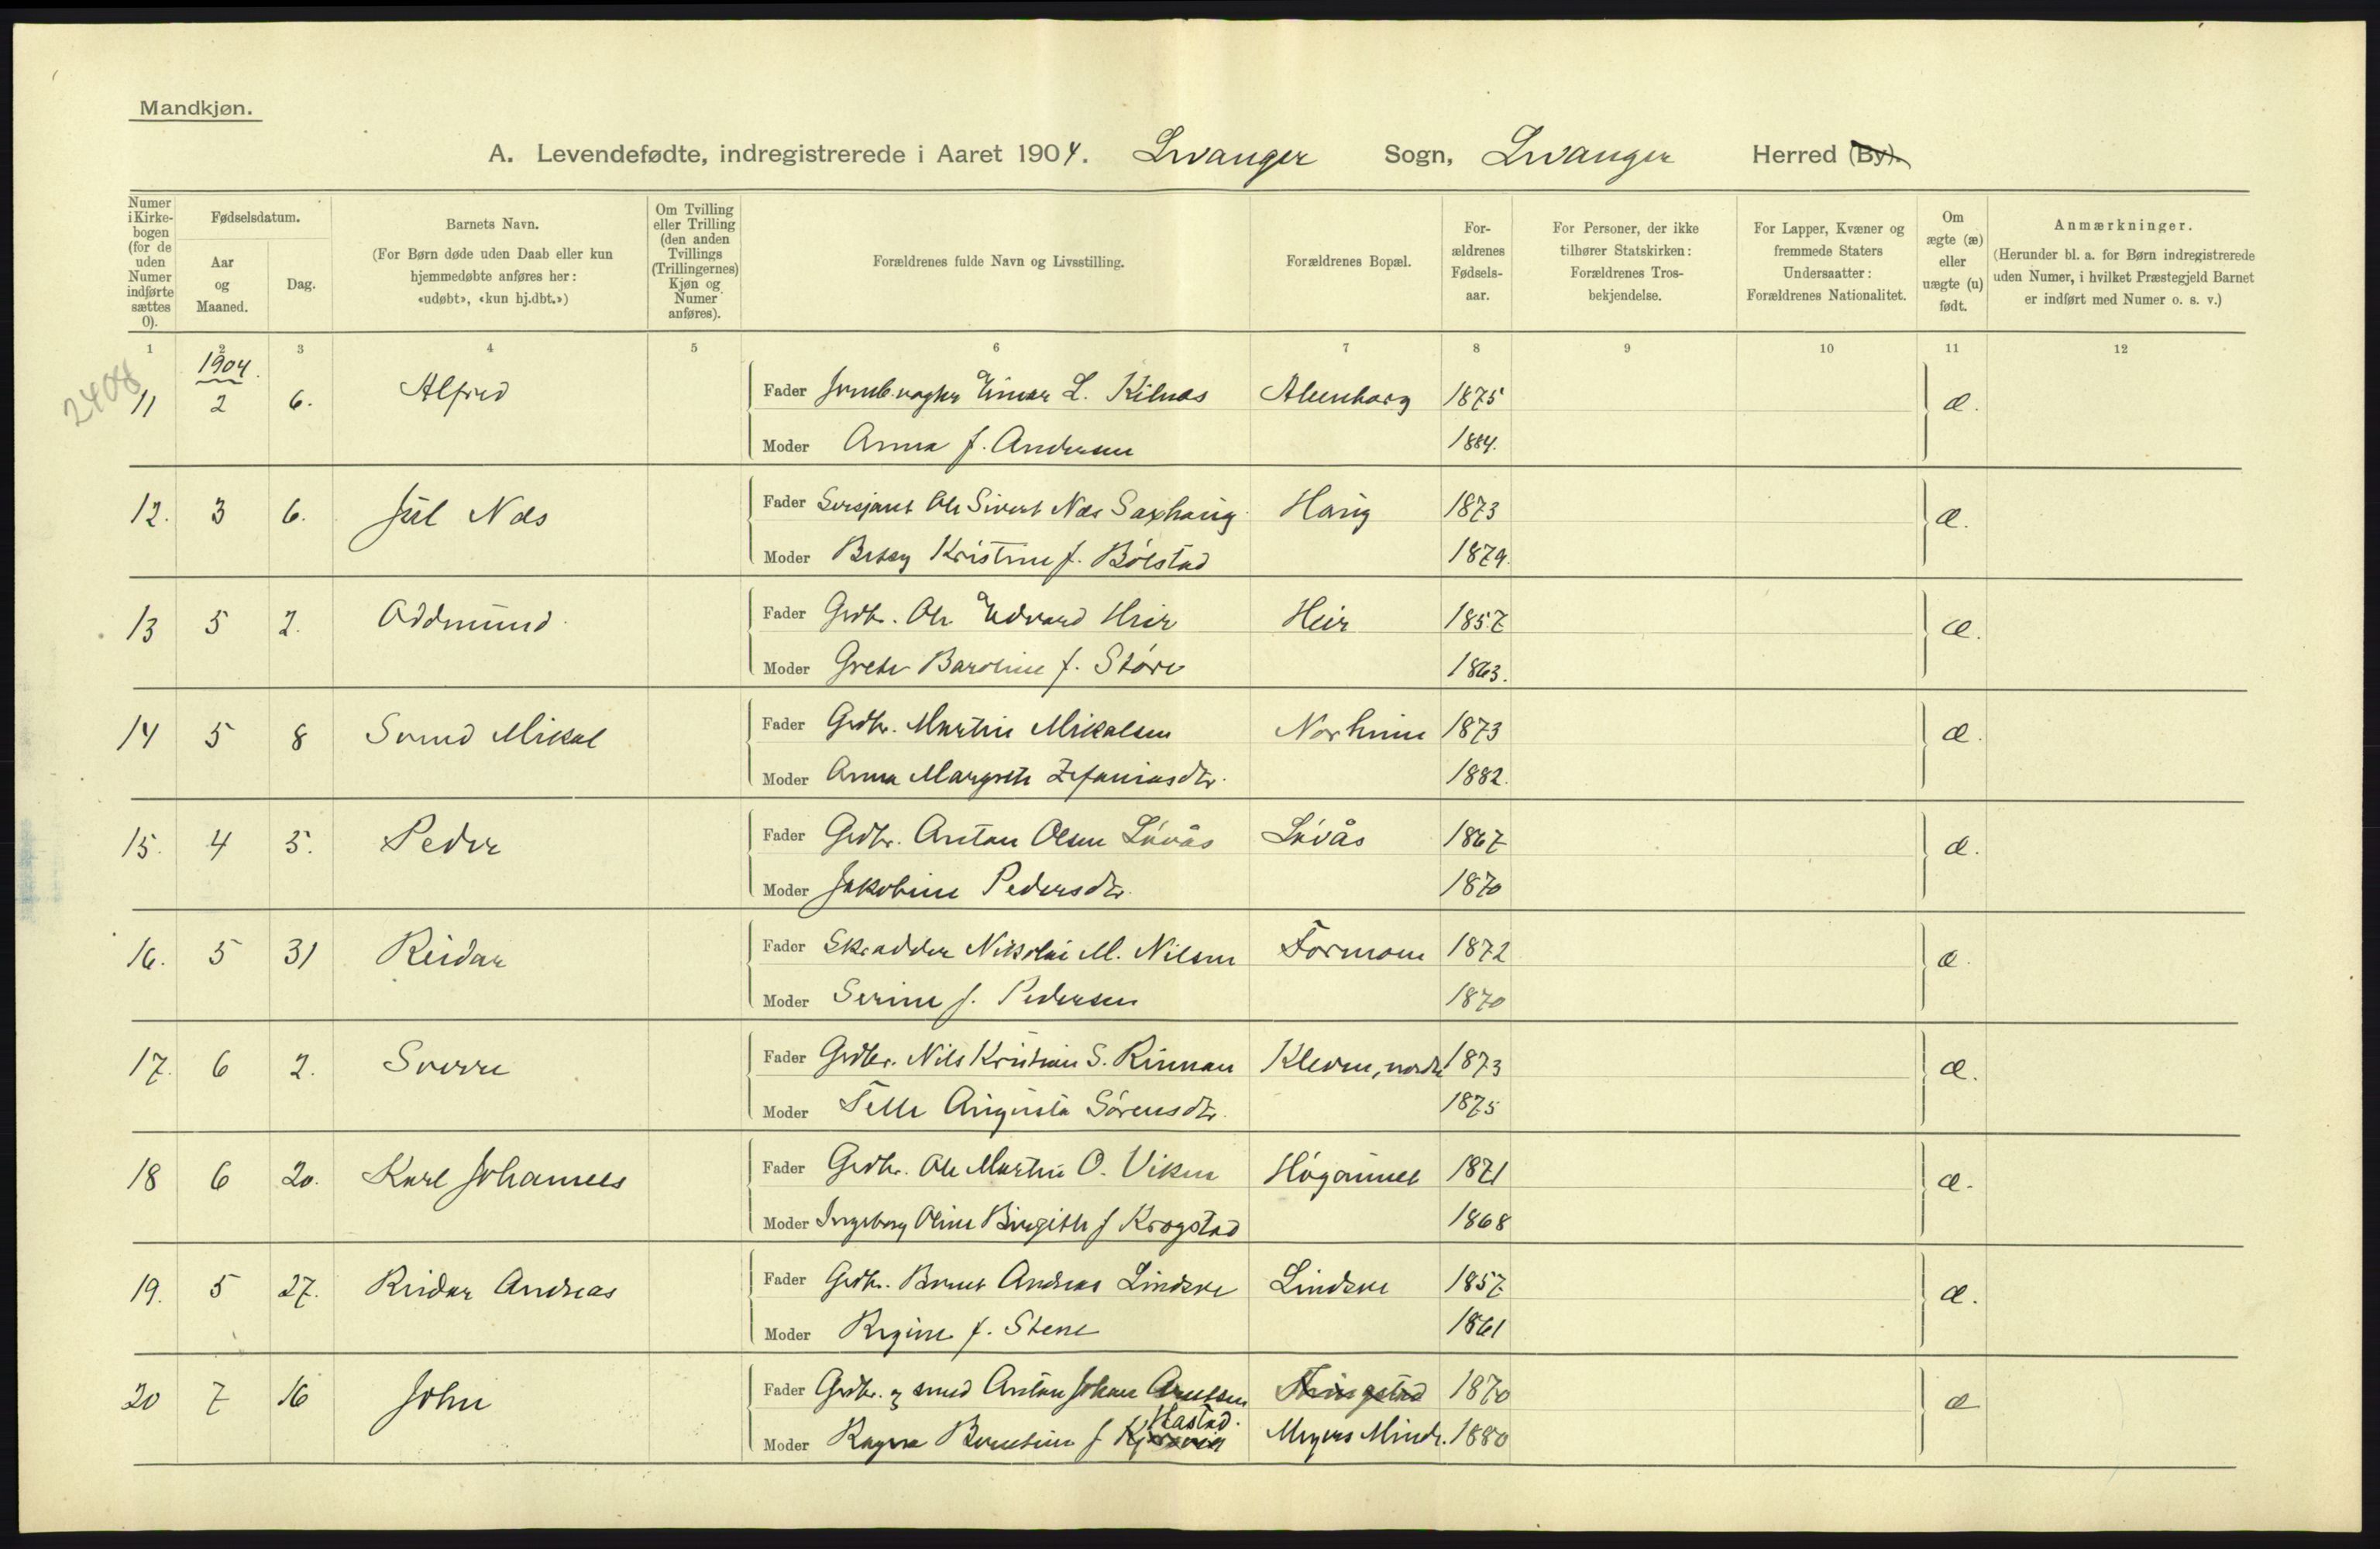 Mandkjøn.
A. Levendefødte, indregistrerede i Aaret 1904. Levanger Sogn, Levanger Herred (By).
Numer i Kirkebogen (for de uden Numer indførte sættes 0).
Fødselsdatum.
Aar og Maaned.
Dag.
Barnets Navn.
(For Børn døde uden Daab eller kun hjemmedøbte anføres her: «udøbt», «kun hj.dbt.»)
Om Tvilling eller Trilling (den anden Tvillings (Trillingernes) Kjøn og Numer anføres).
Forældrenes fulde Navn og Livsstilling.
Forældrenes Bopæl.
Forældrenes Fødselsaar.
For Personer, der ikke tilhører Statskirken: Forældrenes Trosbekjendelse.
For Lapper, Kvæner og fremmede Staters Undersaatter: Forældrenes Nationalitet.
Om ægte (æ) eller uægte (u) født.
Anmærkninger.
(Herunder bl. a. for Børn indregistrerede uden Numer, i hvilket Præstegjeld Barnet er indført med Numer o. s. v.)
1 2 3 4 5 6 7 8 9 10 11 12
2408
1904.
11 2 6. Alfred Fader Jernb.vogter Einar L. Kilnæs 1875 æ.
Moder Anna f. Andersen 1884.
12. 3 6. Jul Næs Fader Sersjant Ole Sivert Næs Saxhaug Haug 1873 æ.
Moder Betsy Kristine f. Bölstad 1879.
13 5 2. Oddmund Fader Grdbr. Ole Edvard Heir Heir 1857 æ.
Moder Grete Baroline f. Störe 1863.
14 5 8 Svend Mikal Fader Grdbr. Martin Mikalsen Norheim 1873 æ.
Moder Anna Margrete Zefaniasdtr. 1882.
15. 4 5. Peder Fader Grdbr. Anton Olsen Lövås Lövås 1867 æ.
Moder Jakobine Pedersdtr. 1870
16. 5 31 Reidar Fader Skrædder Nikolai M. Nilsen Formoen 1872 æ.
Moder Serine f. Pedersen 1870
17. 6 2. Sverre Fader Grdbr. Nils Kristian S. Rinnan Kleven, nordre 1873 æ.
Moder Augusta Sörensdtr. 1875
18 6 20. Karl Johannes Fader Grdbr. Ole Martin O. Viken 1871 æ.
Moder Ingeborg Oline Birgitte f Krogstad 1868
19. 5 27. Reidar Andreas Fader Grdbr. Bernt Andreas Lindsve Lindsve 1857 æ.
Moder Regine f. Stene 1861
20 7 16 John Fader Grdbr. og smed Anton Johan Arntsen Tringstad 1870 æ
Hastad.
Moder Ragna Berntine f Meyers Minde. 1880